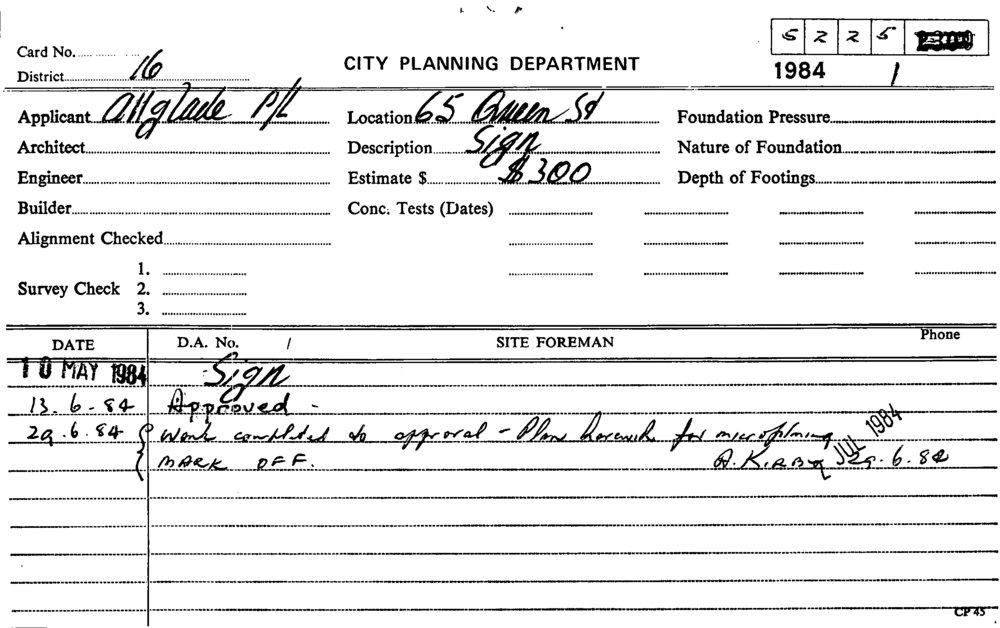 5 2 2 5
Card No.
District 16
CITY PLANNING DEPARTMENT
1984 /
Applicant Allglade P/L
Location 65 Queen St
Foundation Pressure
Architect
Description Sign
Nature of Foundation
Engineer
Estimate $ $300
Depth of Footings
Builder
Conc. Tests (Dates)
Alignment Checked
1.
Survey Check 2.
3.
DATE D.A. No. / SITE FOREMAN Phone
10 MAY 1984 Sign
13.6-84 Approved -
29.6.84 Work completed to approval - Plan herewith for microfilming
JUL 1984
MARK OFF. A. KIRBY 29.6.84
CP 45